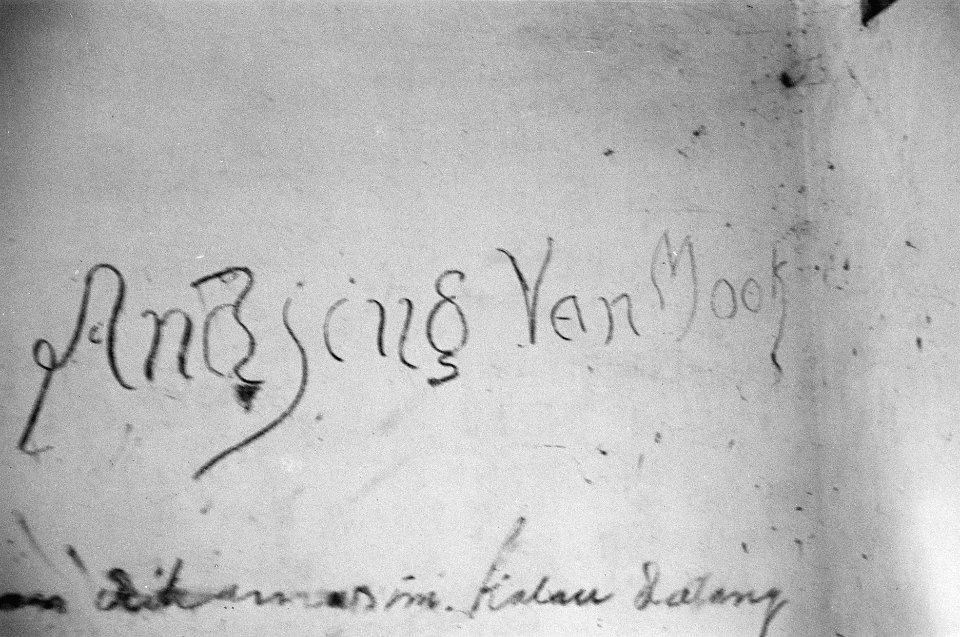 Andjing Van Mook
dikamar ini. Kalau Datang